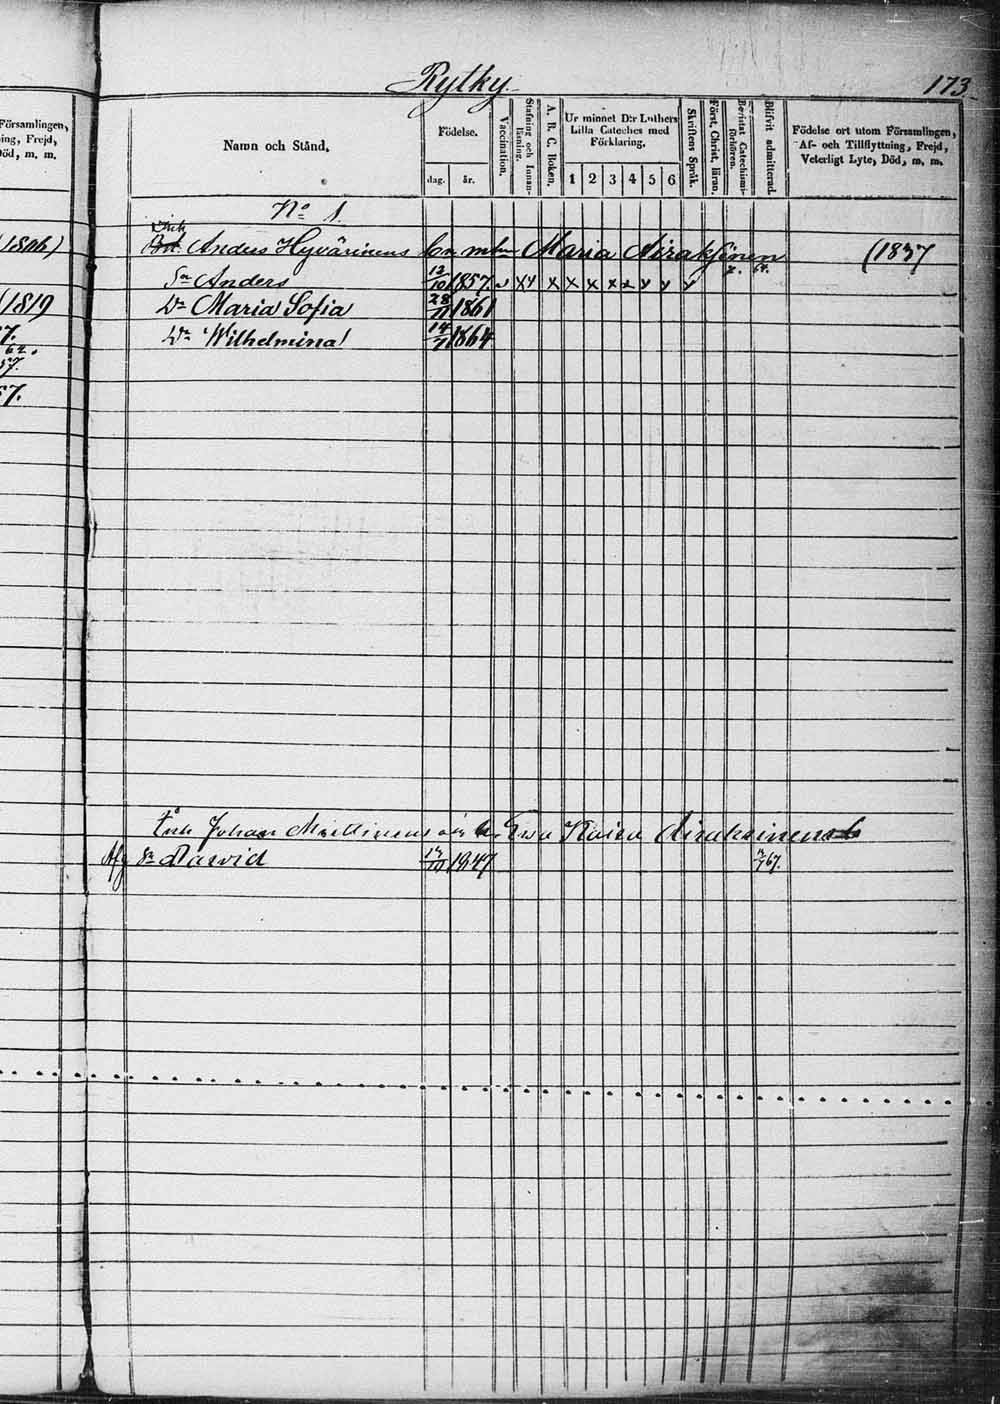 Rytky.
173.
Församlingen,
ning, Frejd,
Död, m. m.
Namn och Stånd,
Födelse.
dag.
år.
Vaccination.
Stafning och Innan-
läsning.
A. B. C. Boken.
Ur minnet D:r Luthers
Lilla Cateches med
Förklaring.
1 2 3 4 5 6
Skriftens Språk.
Först. Christ. läran.
Bevistat Catechismi-
förhören.
Blifvit admitterad.
Födelse ort utom Församlingen,
Af- och Tillflyttning, Frejd,
Veterligt Lyte, Död, m. m.
No 1.
Anders Hyvärinens Maria Airaksinen (1837
Sn Anders 12/10 1857 x x x x x x x
Dr Maria Sofia 28/11 1861
Dr Wilhelmina 14/1 1864
1806)
(1819
7.
62.
57.
57.
Johan Ewa Kaisa Airaksinens
Afg Sn Dawid 1847 67.